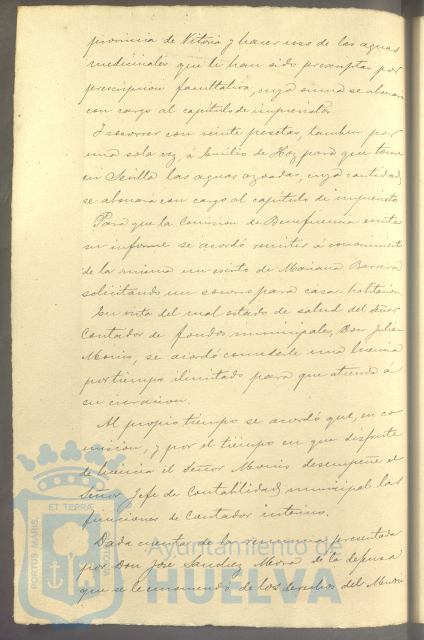 provincia de Vitoria y hacer uso de las aguas
medicinales que le han sido prescriptas por
prescripcion facultativa, cuya suma se abonará
con cargo al capitulo de imprevistos.
Y socorrer con veinte pesetas, tambien por
una sola vez, á Emilio de Hoz para que tome
en Sevilla las aguas azoadas, cuya cantidad
se abonará con cargo al capitulo de imprevisto
Para que la Comision de Beneficencia emita
su informe se acordó remitir á conocimiento
de la misma un escrito de Mariana Barrera
solicitando un socorro para casa habitacion
En vista del mal estado de salud del Señor
Contador de fondos municipales, Don Julian
se acordó concederle una licencia
por tiempo ilimitado para que atienda á
su curacion.
Al propio tiempo se acordó que, en co
mision, y por el tiempo en que disfrute
de licencia el Señor desempeñe el
Señor Jefe de Contabilidad municipal las
funciones de Contador interino.
Dada cuenta de la renuncia presentada
por Don José Sanchez Mora de la defensa
que se le encomendó de los derechos del
PORTUS MARIS ET TERRÆ
Ayuntamiento de
HUELVA